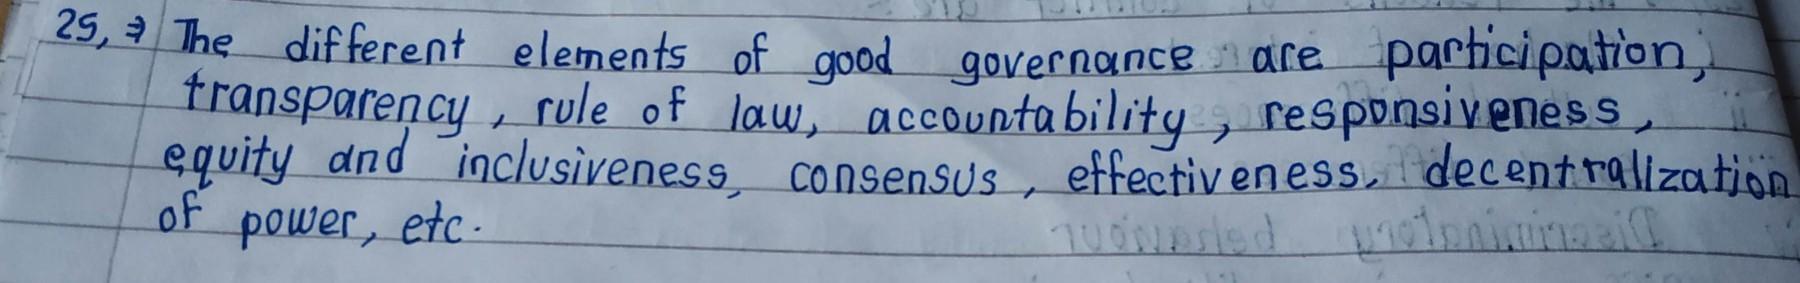 25, → The different elements of good governance are participation,
transparency, rule of law, accountability, responsiveness,
equity and inclusiveness, consensus, effectiveness, decentralization
of power, etc.